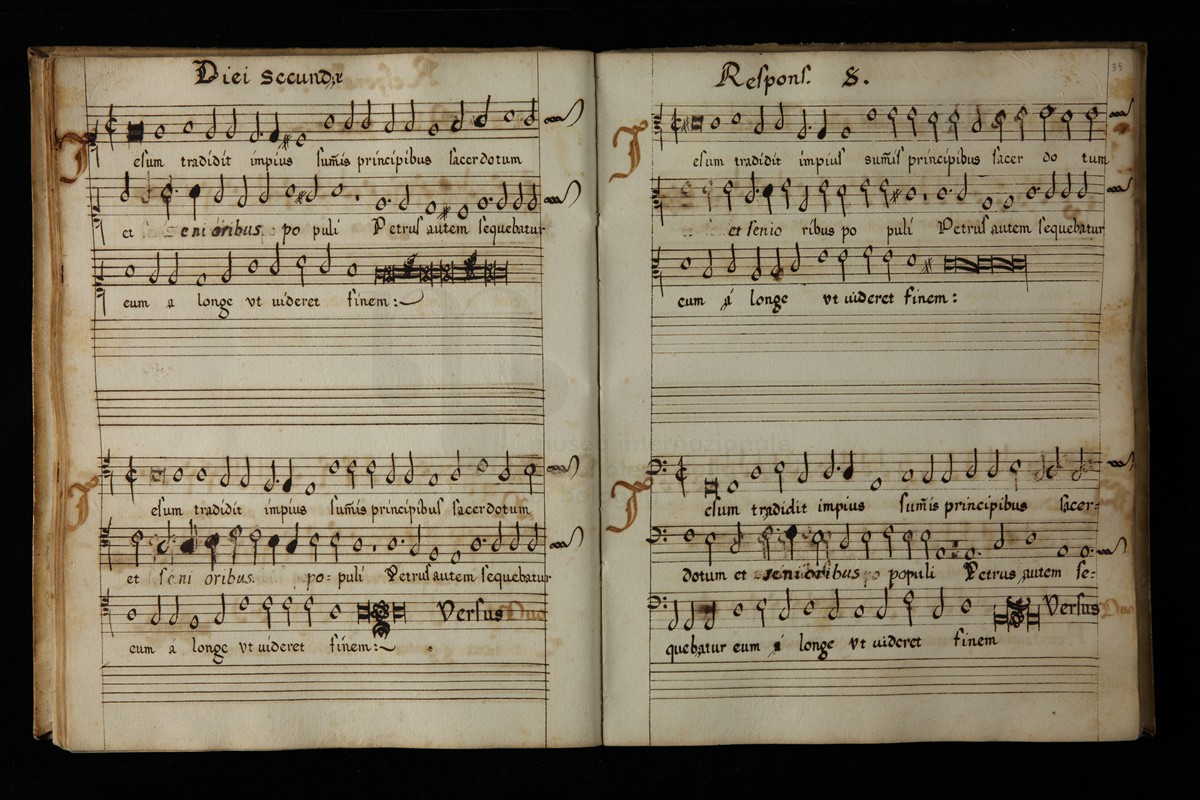 Diei secundæ
Iesum tradidit impius sum̃is principibus sacerdotum
et senioribus populi Petrus autem sequebatur
eum a longe vt uideret finem:
Iesum tradidit impius sum̃is principibus sacerdotum
et seni oribus. po= puli Petrus autem sequebatur
eum a longe vt uideret finem: Versus Duo
Respons. 8. 35
Iesum tradidit impius sum̃is principibus sacer do tum
et senio ribus po puli Petrus autem sequebatur
eum á longe vt uideret finem:
museo internazionale
Iesum tradidit impius sum̃is principibus sacer=
dotum et senioribus populi Petrus autem se=
quebatur eum a longe vt uideret finem Versus Duo